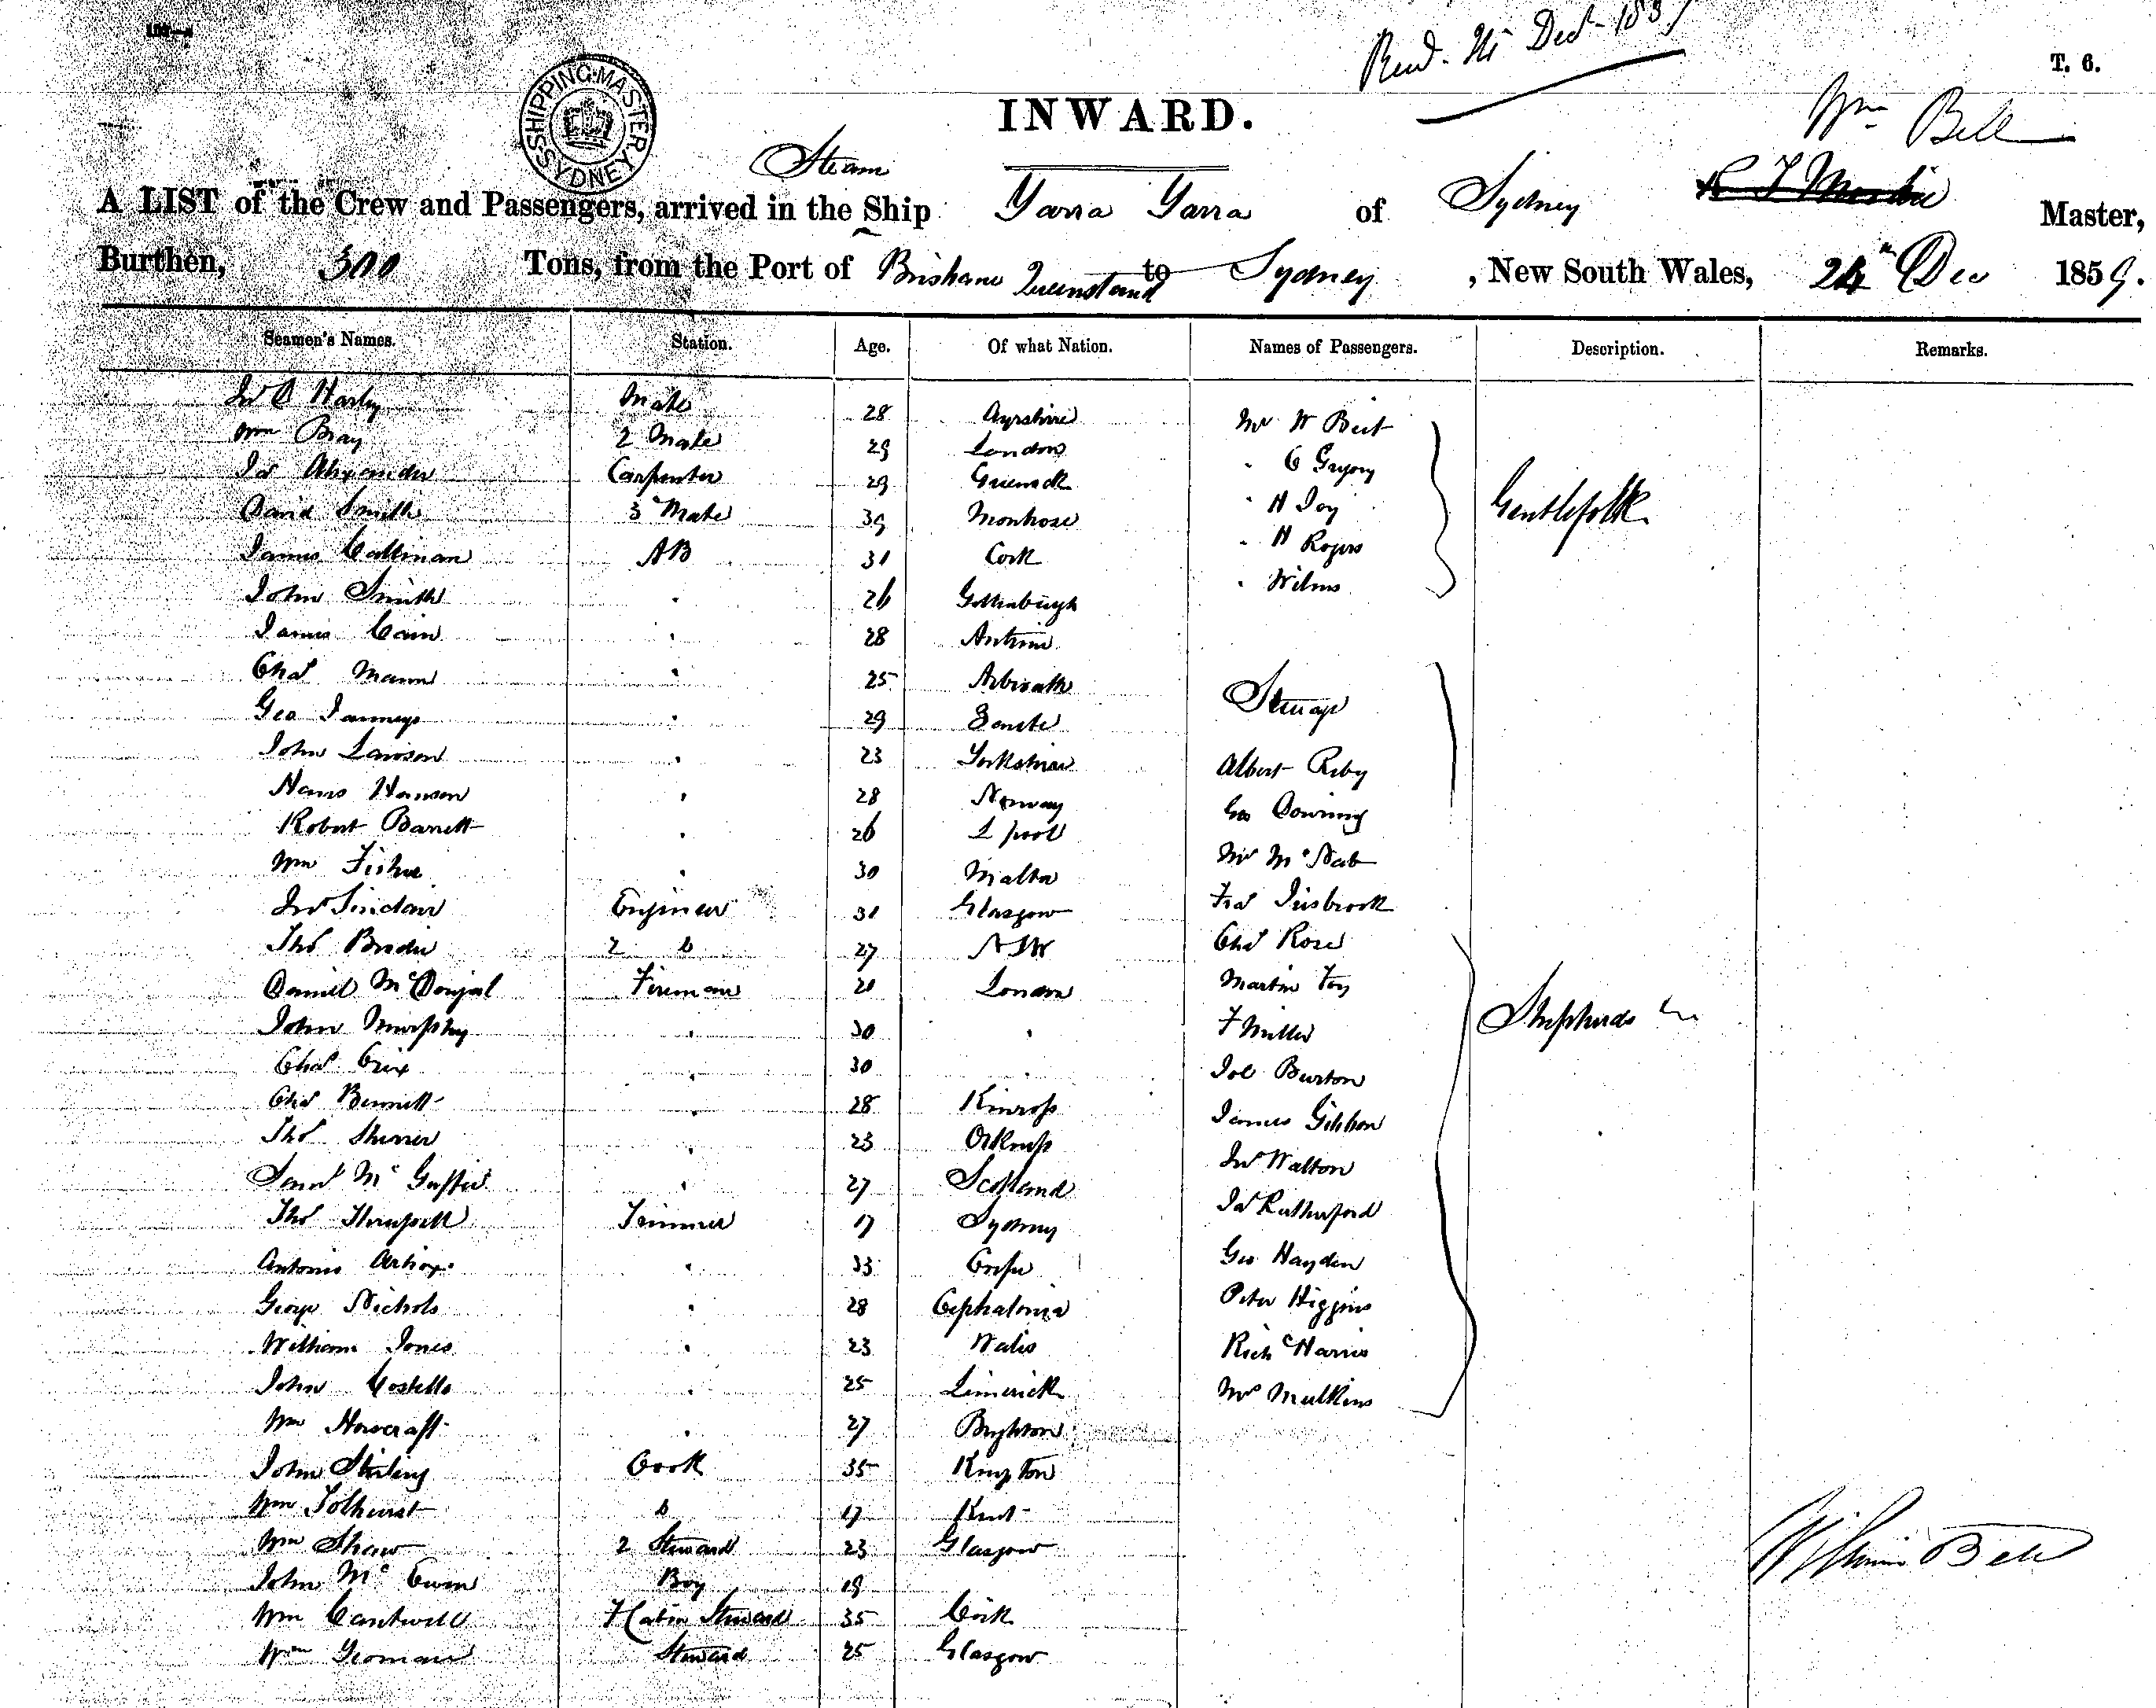 Dec 185
T. 6.
SHIPPING MASTER SYDNEY
INWARD.
Wm Bell
Steam
A LIST of the Crew and Passengers, arrived in the Ship Yarra Yarra of Sydney Master,
Burthen, 300 Tons, from the Port of Brisbane Queensland to Sydney, New South Wales, 24th Dec 1859.
Seamen's Names. Station. Age. Of what Nation. Names of Passengers. Description. Remarks.
Jno Mate 28 Ayrshire Mr W
Wm Bray 2 Mate 29 London " C Gregory
Js Alexander Carpenter 29 Greenock " H Joy Gentlefolk
David Smith 3 Mate 39 Montrose " H Rogers
James Callinan AB 31 Cork " Wilms
John Smith " 26 Gothenburgh
James Cain " 28 Antrim
Chas Mann " 25 Arbroath Steerage
Geo " 29
John Lawson " 23 Yorkshire Albert
Hans Hanson " 28 Norway Geo Downing
Robert Barrett " 26 L pool Mr McNab
Wm Fisher " 30 Malta
Jno Sinclair Engineer 31 Glasgow Chas Rose
Thos Brodie 2 D 27 NSW Martin Foy
Daniel McDougal Fireman 20 London F Miller Shepherds
John Murphy " 30 " Job Burton
Chas " 30 " James Gibbon
Chas Bennett " 28 Kinross Jno Walton
Thos " 23 Orkneys Js Rutherford
Saml Mc " 27 Scotland Geo Hayden
Thos Trimmer 17 Sydney Peter Higgins
Antonio " 33 Corfu Richd Harris
George Nichols " 28 Cephalonia Mr Mulkins
William Jones " 23 Wales
John Costello " 25 Limerick
Wm Howcraft " 27 Brighton
John Stirling Cook 35 Kingston
Wm Tolhurst D 17 Kent
Wm Shaw 2 Steward 23 Glasgow
John McEwen Boy 19
Wm Cantwell F Cabin Steward 35 Cork
Wm Yeoman Steward 25 Glasgow
William Bell